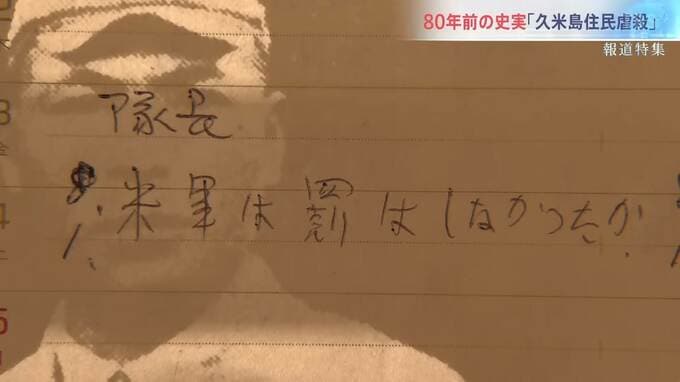 80年前の史実「久米島住民虐殺」
報道特集
隊長
米軍は罰はしなかったか
4
5